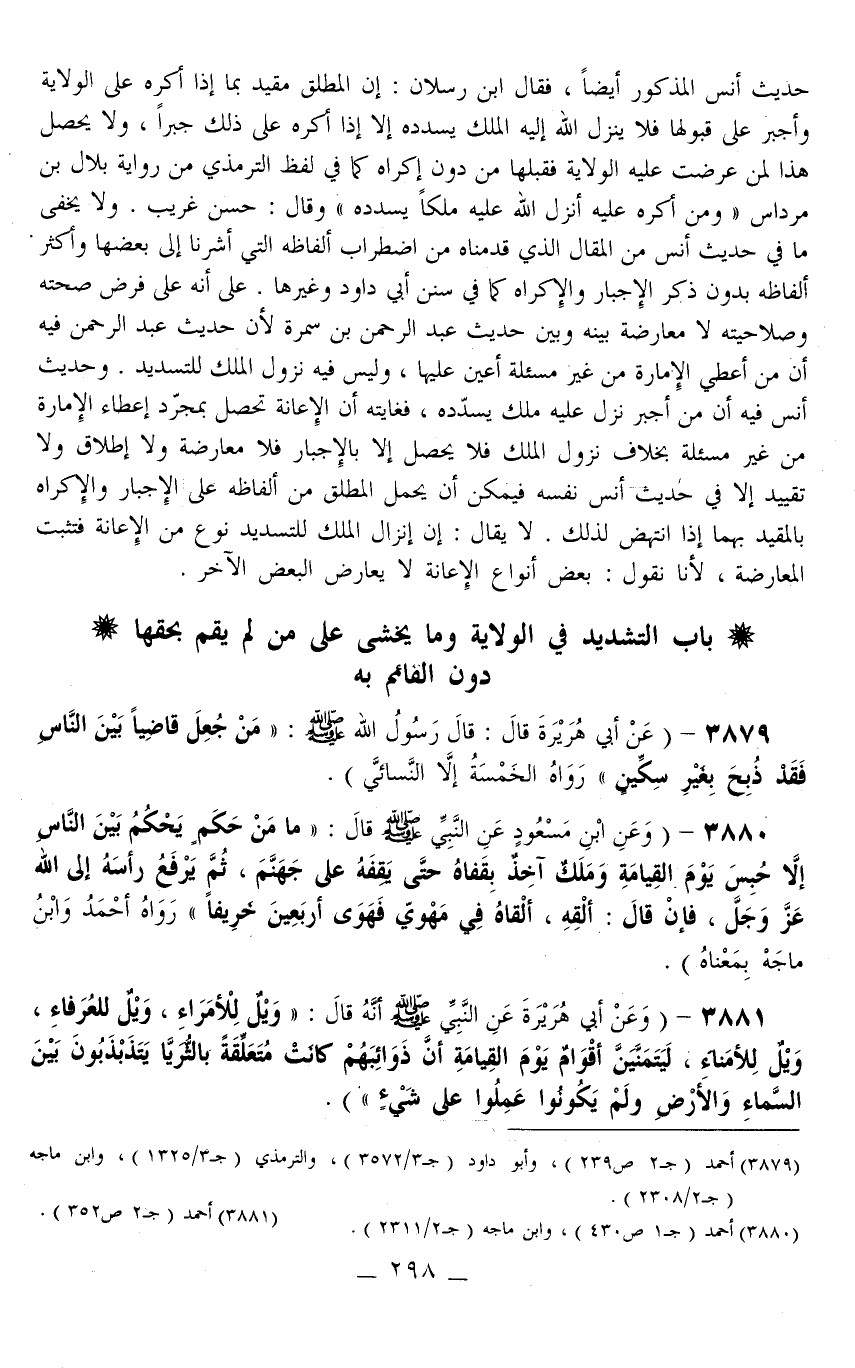 حديث أنس المذكور أيضاً ، فقال ابن رسلان : إن المطلق مقيد بما إذا أكره على الولاية
وأجبر على قبولها فلا ينزل الله إليه الملك يسدده إلا إذا أكره على ذلك جبراً ، ولا يحصل
هذا لمن عرضت عليه الولاية فقبلها من دون إكراه كما في لفظ الترمذي من رواية بلال بن
مرداس « ومن أكره عليه أنزل الله عليه ملكاً يسدده » وقال : حسن غريب . ولا يخفى
ما في حديث أنس من المقال الذي قدمناه من اضطراب ألفاظه التي أشرنا إلى بعضها وأكثر
ألفاظه بدون ذكر الإجبار والإكراه كما في سنن أبي داود وغيرها . على أنه على فرض صحته
وصلاحيته لا معارضة بينه وبين حديث عبد الرحمن بن سمرة لأن حديث عبد الرحمن فيه
أن من أعطي الإمارة من غير مسئلة أعين عليها ، وليس فيه نزول الملك للتسديد . وحديث
أنس فيه أن من أجبر نزل عليه ملك يسدّده ، فغايته أن الإعانة تحصل بمجرّد إعطاء الإمارة
من غير مسئلة بخلاف نزول الملك فلا يحصل إلا بالإجبار فلا معارضة ولا إطلاق ولا
تقييد إلا في حديث أنس نفسه فيمكن أن يحمل المطلق من ألفاظه على الإجبار والإكراه
بالمقيد بهما إذا انتهض لذلك . لا يقال : إن إنزال الملك للتسديد نوع من الإعانة فتثبت
المعارضة ، لأنا نقول : بعض أنواع الإعانة لا يعارض البعض الآخر .
✷ باب التشديد في الولاية وما يخشى على من لم يقم بحقها ✷
دون القائم به
٣٨٧٩ – ( عَنْ أبي هُرَيْرَةَ قالَ : قالَ رَسُولُ الله ﷺ : « مَنْ جُعِلَ قاضِياً بَيْنَ النَّاسِ
فَقَدْ ذُبِحَ بِغَيْرِ سِكِّينٍ » رَوَاهُ الخَمْسَةُ إلَّا النَّسائيَّ ) .
٣٨٨٠ – ( وَعَنِ ابْنِ مَسْعُودٍ عَنِ النَّبِيِّ ﷺ قالَ : « ما مَنْ حَكَمٍ يَحْكُمُ بَيْنَ النَّاسِ
إلَّا حُبِسَ يَوْمَ القِيامَةِ وَمَلَكٌ آخِذٌ بِقَفاهُ حتَّى يَقِفَهُ على جَهَنَّمَ ، ثُمَّ يَرْفَعُ رأسَهُ إلى الله
عَزَّ وَجَلَّ ، فإنْ قالَ : ألْقِهِ ، ألْقاهُ فِي مَهْويً فَهَوَى أرْبَعِينَ خَرِيفاً » رَوَاهُ أحْمَدُ وَابْنُ
ماجَهْ بِمَعْناهُ ) .
٣٨٨١ – ( وَعَنْ أبي هُرَيْرَةَ عَنِ النَّبِيِّ ﷺ أنَّهُ قالَ : « وَيْلٌ لِلْأُمَرَاءِ ، وَيْلٌ للعُرَفاءِ ،
وَيْلٌ لِلأُمَناءِ ، لَيَتَمَنَّيَنَّ أقْوَامٌ يَوْمَ القِيامَةِ أنَّ ذَوَائِبَهُمْ كانَتْ مُتَعَلِّقَةً بالثُّرَيَّا يَتَذَبْذَبُونَ بَيْنَ
السَّماءِ وَالأرْضِ ولَمْ يَكُونُوا عَمِلُوا على شَيْءٍ » ) .
(٣٨٧٩) أحمد ( جـ٢ ص٢٣٩ ) ، وأبو داود ( جـ٣/٣٥٧٢ ) ، والترمذي ( جـ٣/١٣٢٥ ) ، وابن ماجه
( جـ٢/٢٣٠٨ ) .
(٣٨٨٠) أحمد ( جـ١ ص٤٣٠ ) ، وابن ماجه ( جـ٢/٢٣١١ ) .
(٣٨٨١) أحمد ( جـ٢ ص٣٥٢ ) .
– ٢٩٨ –